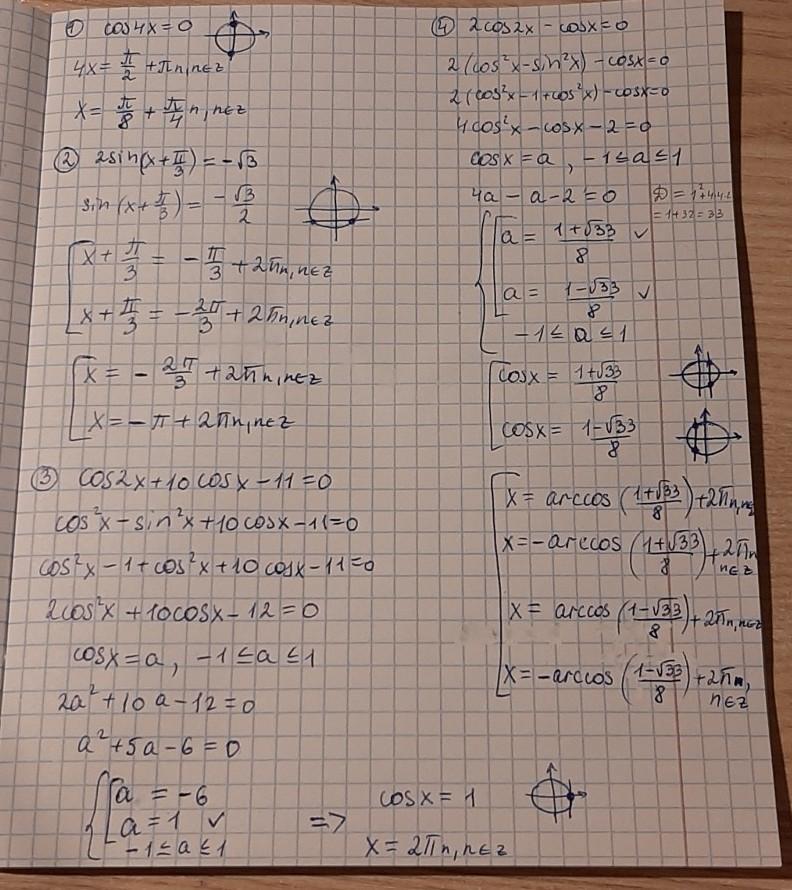 ① cos4x=0
4x = π/2 + πn, n∈z
x = π/8 + π/4 n, n∈z
② 2sin(x+π/3) = -√3
sin(x+π/3) = -√3/2
x + π/3 = -π/3 + 2πn, n∈z
x + π/3 = -2π/3 + 2πn, n∈z
x = -2π/3 + 2πn, n∈z
x = -π + 2πn, n∈z
③ cos2x+10cosx-11=0
cos²x-sin²x+10cosx-11=0
cos²x-1+cos²x+10cosx-11=0
2cos²x+10cosx-12=0
cosx=a, -1≤a≤1
2a²+10a-12=0
a²+5a-6=0
a = -6
a = 1 ✓
-1≤a≤1
=>
cosx = 1
x = 2πn, n∈z
④ 2cos2x-cosx=0
2(cos²x-sin²x)-cosx=0
2(cos²x-1+cos²x)-cosx=0
4cos²x-cosx-2=0
cosx=a, -1≤a≤1
4a-a-2=0
D=1²+4·4·2
=1+32=33
a = (1+√33)/8 ✓
a = (1-√33)/8 ✓
-1≤a≤1
cosx = (1+√33)/8
cosx = (1-√33)/8
x = arccos((1+√33)/8)+2πn, n∈z
x=-arccos((1+√33)/8)+2πn
n∈z
x = arccos((1-√33)/8)+2πn, n∈z
x=-arccos((1-√33)/8)+2πn,
n∈z